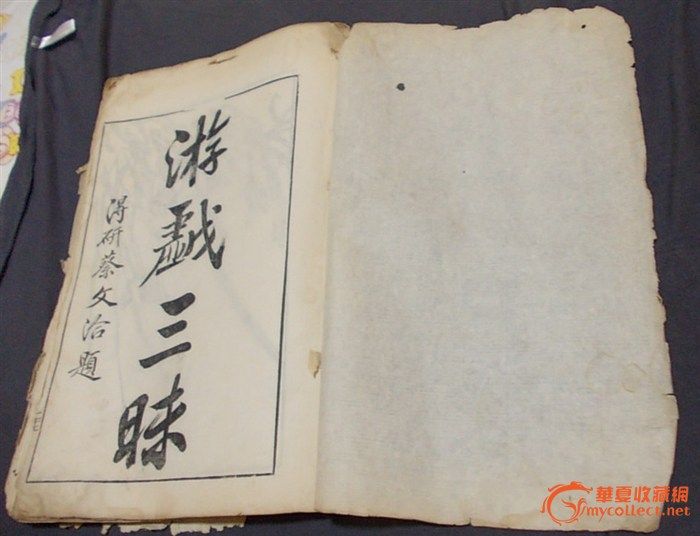 游戲三昧
得研蔡文洽題
華夏收藏網
mycollect.net